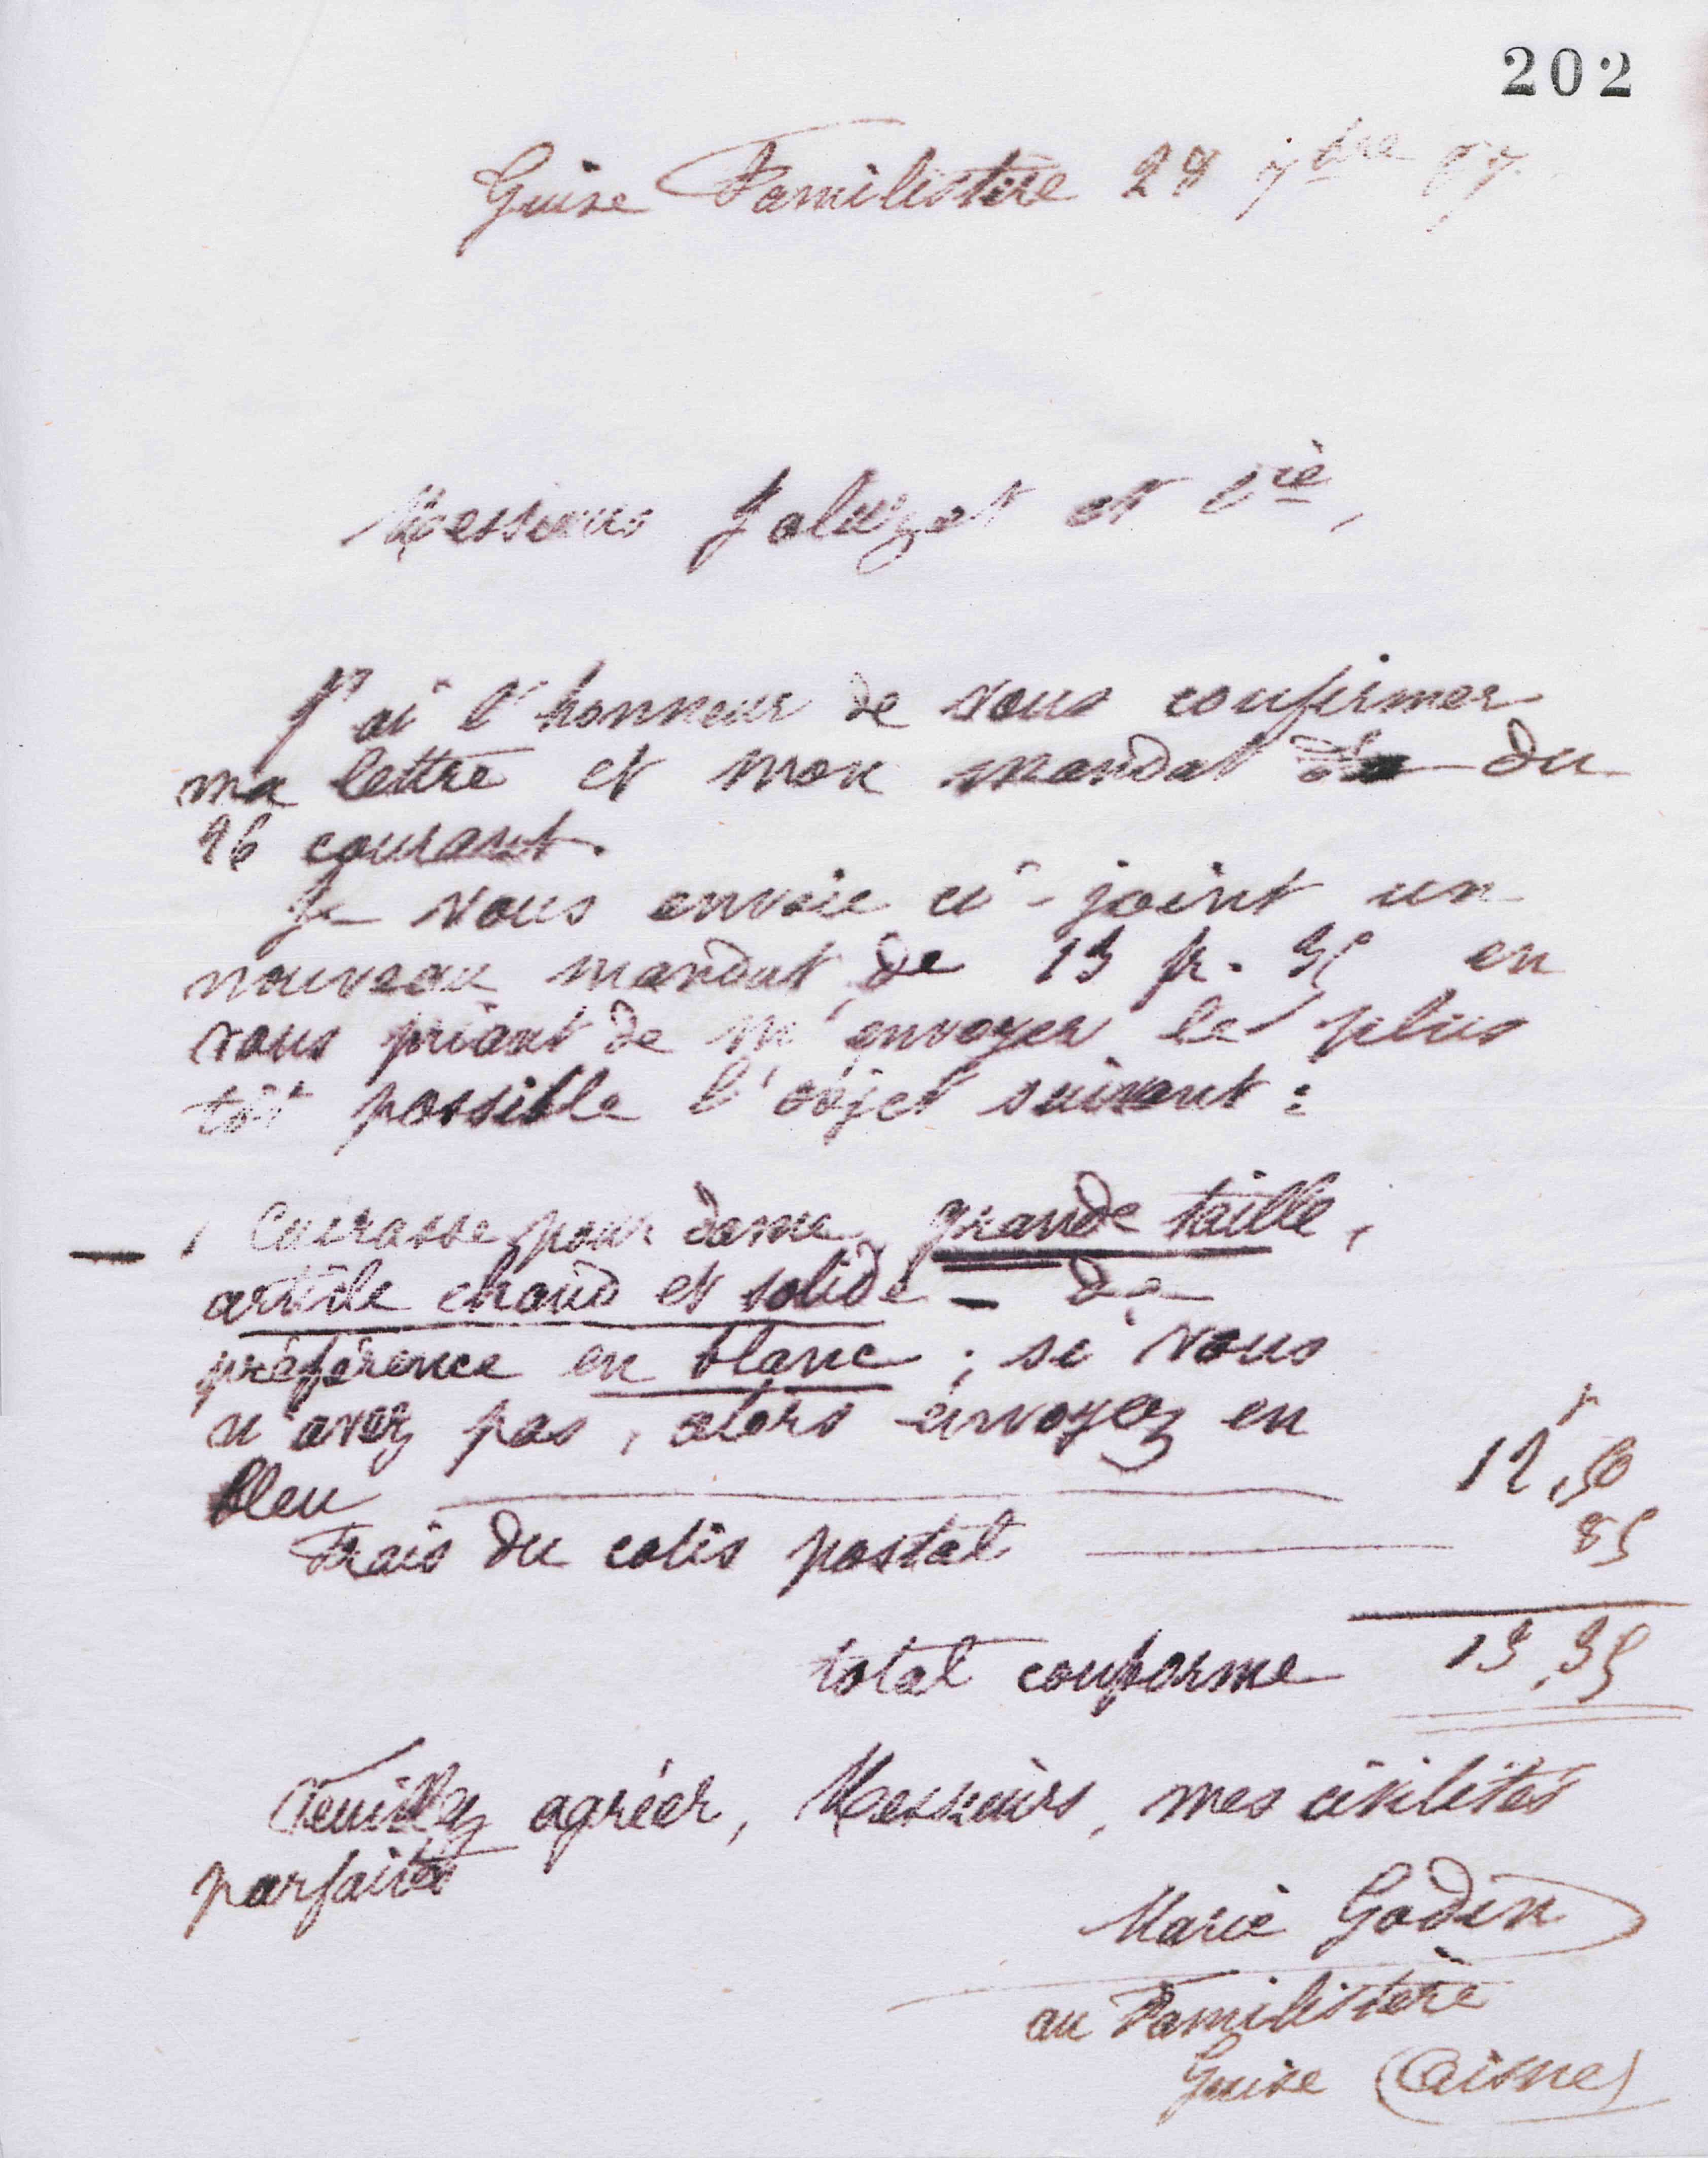 202
Guise Familistère 28 7bre 87
Messieurs Jaluzot et Cie,
J'ai l'honneur de vous confirmer
ma lettre et mon mandat du
26 courant.
Je vous envoie ci-joint un
nouveau mandat de 13 fr. 35 en
vous priant de m'envoyer le plus
tôt possible l'objet suivant :
— 1 Cuirasse pour dame, grande taille,
article chaud et solide — de
préférence en blanc ; si vous
n'avez pas, alors envoyez en
bleu 12f,50
Frais du colis postal 85
total conforme 13,35
Veuillez agréer, Messieurs, mes civilités
parfaites
Marie Godin
au Familistère
Guise (Aisne)